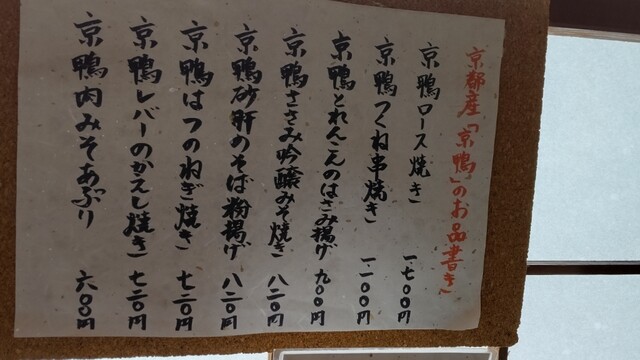 京都産「京鴨」のお品書き
京鴨ロース焼き 一、七〇〇円
京鴨つくね串焼き 一、一〇〇円
京鴨とれんこんのはさみ揚げ 九〇〇円
京鴨ささみ吟醸みそ焼き 八二〇円
京鴨砂肝のそば粉揚げ 八二〇円
京鴨はつのねぎ焼き 七二〇円
京鴨レバーのかえし焼き 七二〇円
京鴨肉みそあぶり 六〇〇円